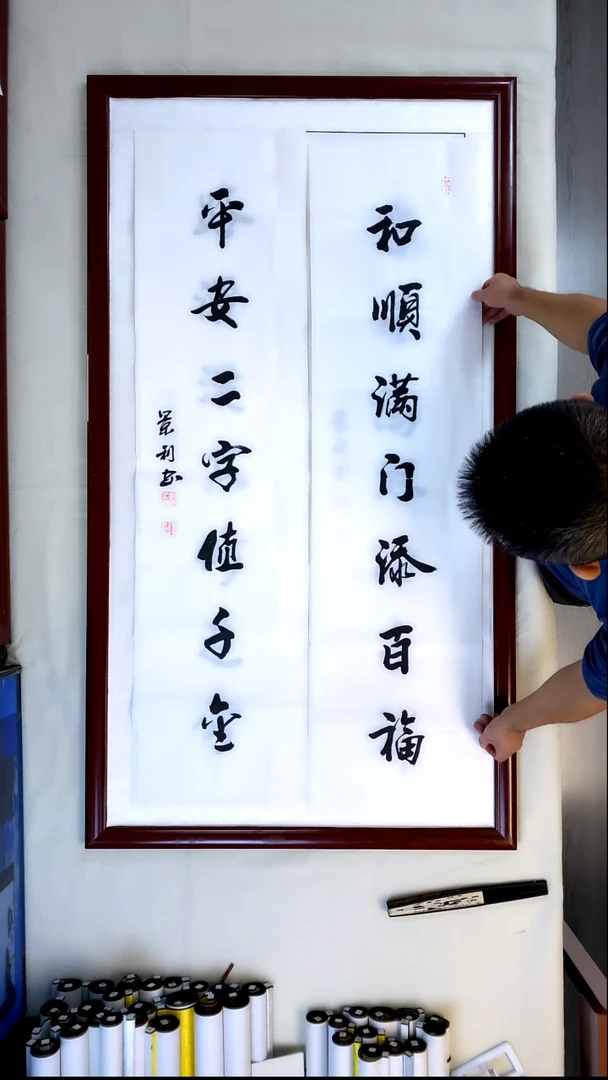 和順满门添百福
平安二字值千金
景利书